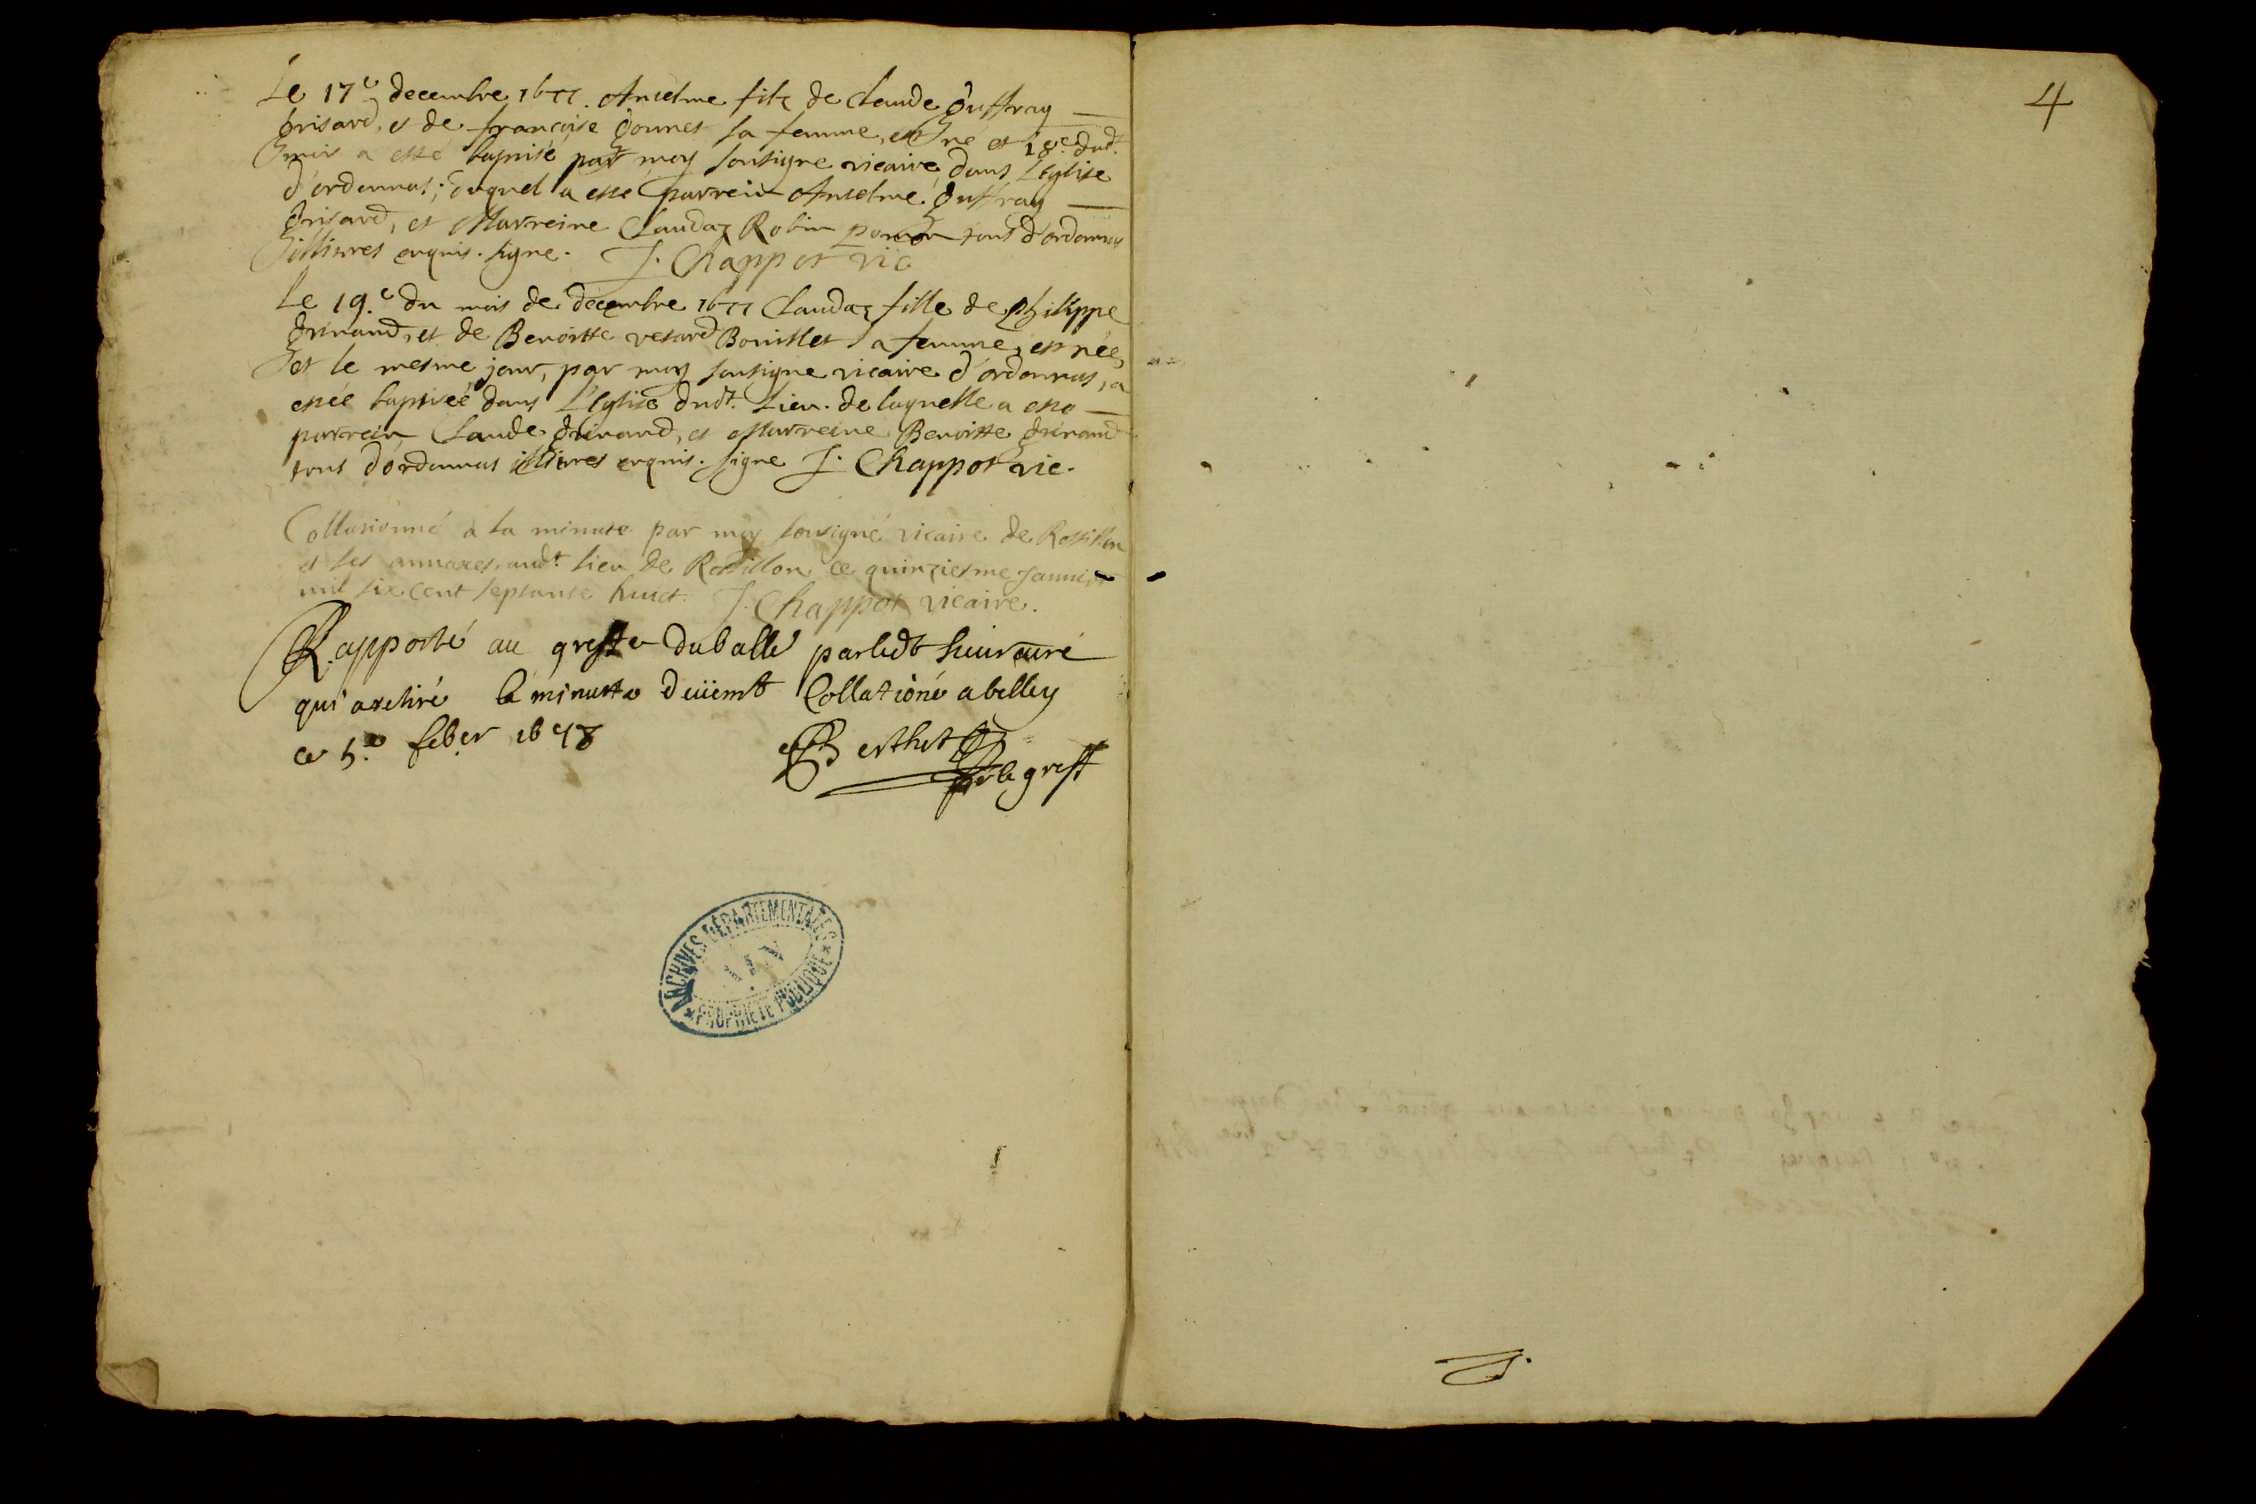 Le 17e decembre 1677. Anselme filz de Claude Guffray
Grisard, et de françoise Gonnet sa femme, est né et 18e dudt
mois a esté baptisé par moy soubsigne vicaire, dans L'église
d'ordonnas; duquel a esté parrein Anselme Guffray
Grisard, et Marreine Claudaz Robin tous d'ordonnas
illitires enquis. signe. J. Chappot vic
Le 19.e du mois de decembre 1677 Claudaz fille de philippe
Grinand, et de Benoitte Bouillet sa femme, est née,
et le mesme jour, par moy soubsigne vicaire d'ordonnas, a
estée baptisée dans L'église dudt. lieu. de laquelle a esté
parrein Claude Grinand, et Marreine Benoitte Grinand
tous d'ordonnas illitires enquis. signe J. Chappot vic.
Collationné à la minute par moy soubsigné vicaire de Rossillon
et ses annexes, audt lieu de Rossillon ce quinziesme Janvier
mil six cent septante huict. J. Chappot vicaire.
Rapporté au greffe du balle par ledt sieur curé
qui a retiré la minutte duëmt Collationé a belley
ce 5.e feber 1678
Berthet
pr le greff
ARCHIVES DÉPARTEMENTALES
AIN
PROPRIÉTÉ PUBLIQUE
4